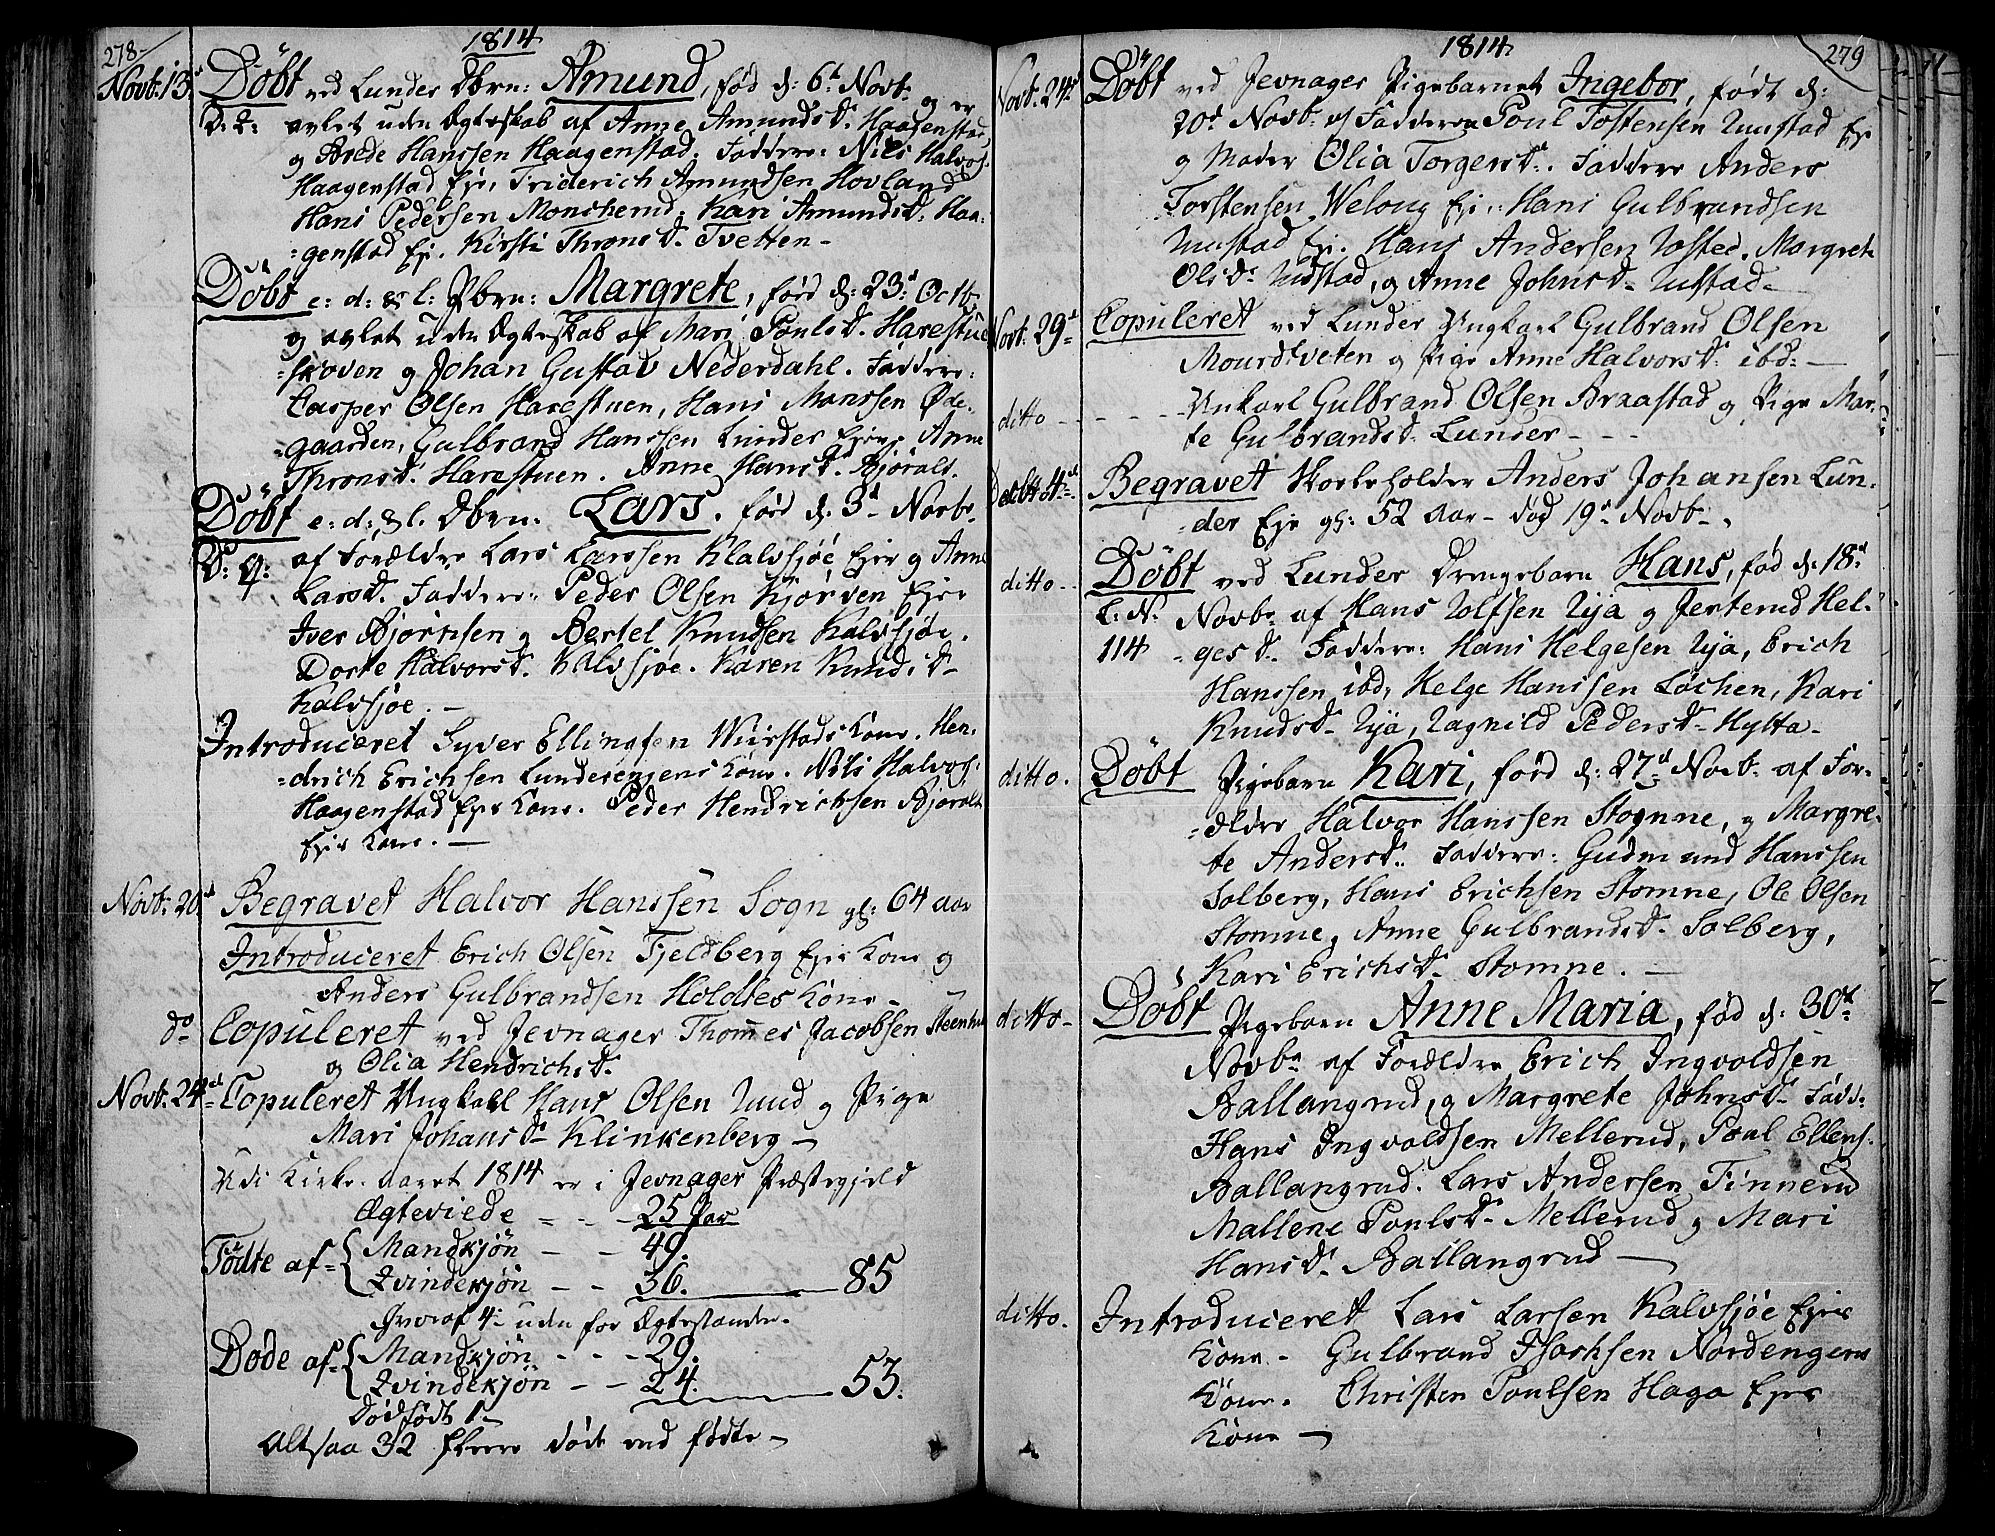 278
1814
Novb: 13d Döbt ved Lunder Dbrn: Amund, fød d: 6t Novb: og er
D: 2: avlet uden Ægteskab af Anne Amundsd. Haagenstad,
og Brede Hanssen Haagenstad. Faddere: Nils Halvos.
Haagenstad Eje, Friderich Amundsen Hovland
Hans Pedersen Monskerud. Kari Amundsd. Haa-
=genstad Eje. Kirsti Thronsd. Tvetten -
Döbt e: d: & l: Pbrn: Margrete, förd d: 23d Octb.
og avlet uden Ægteskab af Mari Poulsd. Harestue
=skoven og Johan Gustav Nederdahl. Faddere:
Casper Olsen Harestuen, Hans Monssen Øde-
=gaarden, Gulbrand Hanssen Lunder Eje, Anne
Thronsd. Harestuen. Anne Hansd. Bjørals.
Döbt e: d: & l. Dbrn. Lars. förd d: 3d Novbr.
D: 9: af Forældre Lars Larssen Klalvsjöe Eje og Anne
Larsd. Faddere: Peder Olsen Kjørven Eje
Iver Bjørnsen og Bertel Knudsen Kalvsjöe.
Dorte Halvorsd. Kalvsjöe. Karen Knudsd-
Kalvsjöe. -
Introduceret Syver Ellingsen Wiirstads Kone. Hen-
=drich Erichsen Lunderenjens Kone. Nils Halvos.
Haagenstad Ejes Kone. Peder Hendrichsen Bjørals
Ejes Kone. -
Novb: 20d Begravet Halvor Hanssen Sogn gl: 64 aar
Introduceret Erich Olsen Fjeldberg Ejes Kone og
Anders Gulbrandsen Holdtes Kone -
do Copuleret ved Jevnager Thommes Jacobsen Steenhuu
og Olia Hendrichsd.
Novb: 24d Copuleret Ungkall Hans Olsen Ruud og Pige
Mari Johansd- Klinkenberg -
Udi Kirke-aaret 1814 er i Jevnager Præstegield
Ægteviede - - - 25 Par
Födte af { Mandkjön - - 49.
Qvindekjön - - 36. 85
Hvoraf 4- uden for Ægtestanden.
Döde af { Mandkjön - - - 29.
Qvindekjön - - 24. 53.
Dödfödt 1-
Altsaa 32 flere födt end födte -
1814
279
Novb: 24d Döbt ved Jevnager Pigebarnet Ingebor, født d:
20d Novb. af Fadderen Poul Tostensen Ruustad Eje
og Moder Olia Torgersd. Faddere Anders
Torstensen Weloug Eje. Hans Gulbrandsen
Ruustad Eje. Hans Andersen Rosted. Margrete
Olisd- Rustad, og Anne Johnsd- Rustad-
Novb: 29d Copuleret ved Lunder Ungkarl Gulbrand Olsen
Mourdtveten og Pige Anne Halvorsd. ibd: -
ditto - - - Unkarl Gulbrand Olsen Braastad og Pige Mar-
te Gulbrandsd- Lunder - - -
Decbr 4d Begravet Skoleholder Anders Johansen Lun-
=der Eje gl: 52 Aar- död 19d Novb-.
ditto - Döbt ved Lunder Drengebarn Hans, fød d: 18d
L: N. 114 Novb- af Hans Rolfsen Rya og Jerterud Hel-
=gesd. Faddere: Hans Helgesen Rya, Erich
Hanssen ibd, Helge Hanssen Løchen, Kari
Knudsd- Rya, Ragnild Pedersd- Hytta-
ditto. Döbt Pigebarn Kari, förd d: 27d Novb- af For-
=ældre Halvor Hanssen Stognne, og Margre-
te Andersd. Faddere: Gudmund Hanssen
Solberg, Hans Erichsen Stomne, Ole Olsen
Stomne, Anne Gulbrandsd- Solberg,
Kari Erichsd- Stomne. -
ditto- Döbt Pigebarn Anne Maria, fød d: 30d
Novbr af Forældre Erich Ingvoldsen
Ballangrud, og Margrete Johnsd- Fadd:
Hans Ingvoldsen Mellerud, Poul Ellens.
Ballangrud. Lars Andersen Finnerud
Mallene Poulsd- Mellerud og Mari
Hansd. Ballangrud -
ditto. Introduceret Lars Larsen Kalvsjöe Ejes
Kone - Gulbrand Isachsen Nordengens
Kone. Christen Poulsen Haga Ejes
Kone -